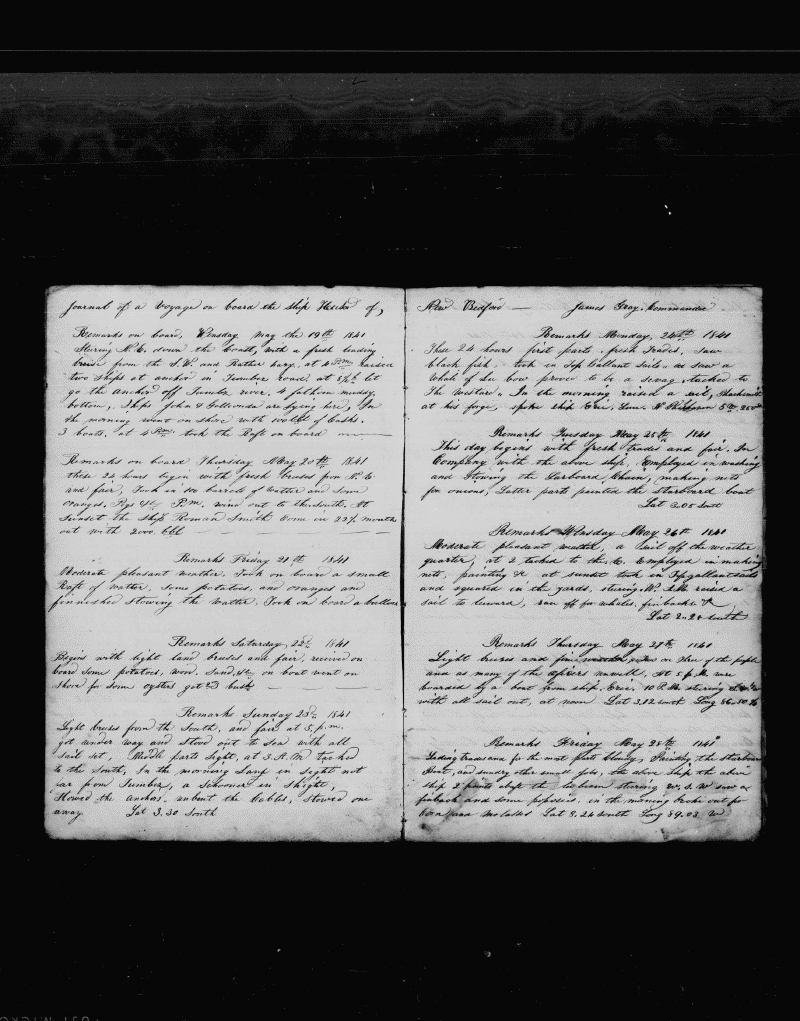 Journal of a Voyage on board the Ship Hector of,
Remarks on board, Wensday May the 19th 1841
Stering N. E. down the Coast, with a fresh leading
breise from the S. W. and Rather hazy, at 4 P.m. raised
two ships at anchor in Tumbez road, at let
go the anchor off Tumbez river, 4 fathom muddy
bottom, Ships John & are lying here, In
the morning went on shore with of Casks.
3 boats, at 4 P.m. took the Raft on board
Remarks on board Thursday May 20th 1841
these 24 hours begin with fresh breises from S. W
and fair, Took in 100 barrels of watter and some
oranges, P.m. wind out to the South. At
Sunset the Ship Roman Smith Come in 22½ months
out with 2000 bbl
Remarks Friday 21th 1841
Moderate pleasant weather, Took on board a small
Raft of watter, some potatoes, and oranges and
finnished Stowing the watter. Took on board a bullock
Remarks Saturday, 22d 1841
Begins with light land breises and fair, received on
board some potatoes, wood, Sand, &c, on boat went on
Shore for some oysters got
Remarks Sunday 23d 1841
Light breises from the South, and fair at 5, p.m.
got under way and Stood out to Sea with all
sail set, Middle parts light, at 3 A.M tacked
to the South, In the morning Land in sight not
far from Tumbez, a Schooner in Shight,
Stowed the anchors, unbent the Cables, Stowed one
away Lat 3.30 South
New Bedford — James Gray, Commander
Remarks Monday, 24th 1841
These 24 hours first parts fresh Trades, saw
black fish, took in Top Gallant Sails, saw a
Whale of Lee bow proved to be a , tacked to
the Westore. In the morning raised a sail, Blacksmith
at his forge, spoke ship Eric,
Remarks Tuesday May 25th 1841
This day begins with fresh trades and fair. In
Company with the above ship, Employed in washing
and Stowing the Larboard Chain, making nets
for onions, Latter parts painted the Starboard boat
Lat 3.05 South
Remarks Wensday May 26th 1841
Moderate pleasant weather, a Sail off the weather
quarter, at 2 tacked to the E. Employed in making
nets, painting &c at sunset took in Topgallantsails
and squared in the yards, stering W. raised a
sail to leward, ran off for whales, finbacks
Lat 2.24 South
Remarks Thursday May 27th 1841
Light breises and on Shore of the
and as many of the At 5 p.m. was
boarded by a boat from ship Eric. 10 P.M. stering
with all sail out, at noon Lat 3.12 South Long 86.50
Remarks Friday May 28th 1841
trades and for the most parts Cloudy, Painting, the Starboard
Boat, and sundry other small jobs, the above Ship the above
ship 2 points abaft the lee beam stering W. S. W saw a
finback and some poposies, in the morning broke out for
bread and molasses Lat 3.24 South Long 89.03 W